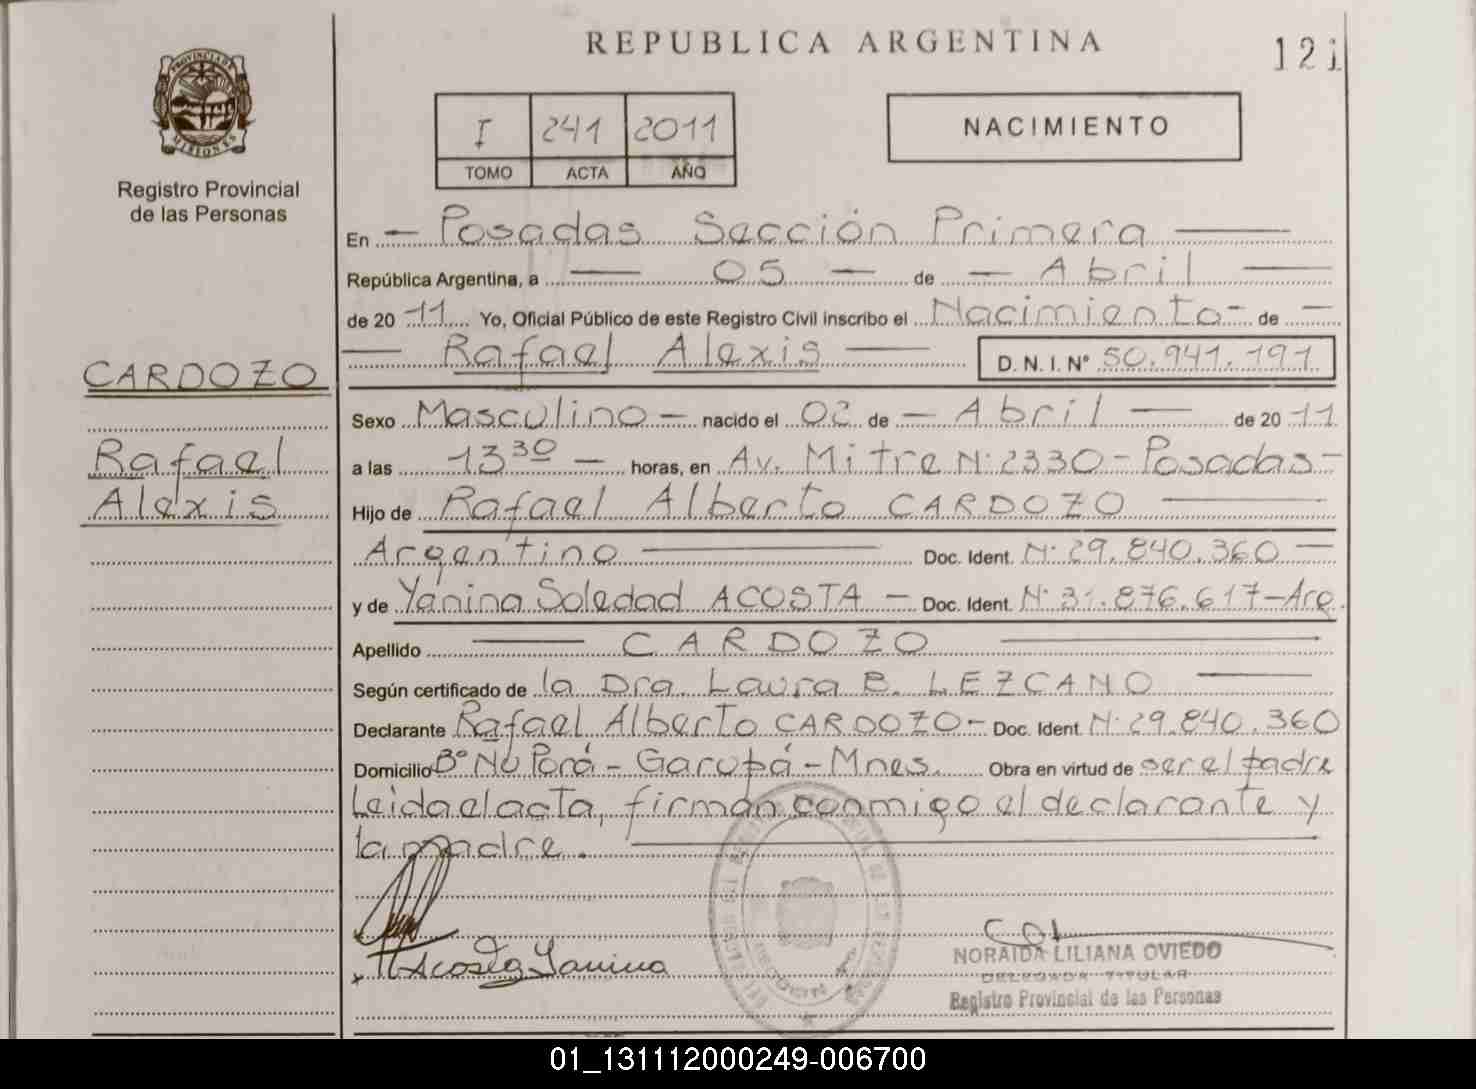 REPUBLICA ARGENTINA
121
PROVINCIA DE
MISIONES
Registro Provincial
de las Personas
I 241 2011
TOMO ACTA AÑO
NACIMIENTO
En Posadas Sección Primera
República Argentina, a 05 de Abril
de 20 11 Yo, Oficial Público de este Registro Civil inscribo el Nacimiento de
Rafael Alexis D. N. I. Nº 50.941.191
CARDOZO
Rafael
Alexis
Sexo Masculino nacido el 02 de Abril de 20 11
a las 13 30 horas, en Av. Mitre Nº 2330 - Posadas -
Hijo de Rafael Alberto CARDOZO
Argentino Doc. Ident. Nº 29.840.360
y de Yanina Soledad ACOSTA - Doc. Ident. Nº 31.876.617 - Arg.
Apellido CARDOZO
Según certificado de la Dra. Laura B. LEZCANO
Declarante Rafael Alberto CARDOZO - Doc. Ident. Nº 29.840.360
Domicilio Bº Ñu Porá - Garupá - Mnes. Obra en virtud de ser el padre
Leida el acta, firman conmigo el declarante y
la madre.
Acosta Yanina
NORAIDA LILIANA OVIEDO
DELEGADA TITULAR
Registro Provincial de las Personas
01_131112000249-006700